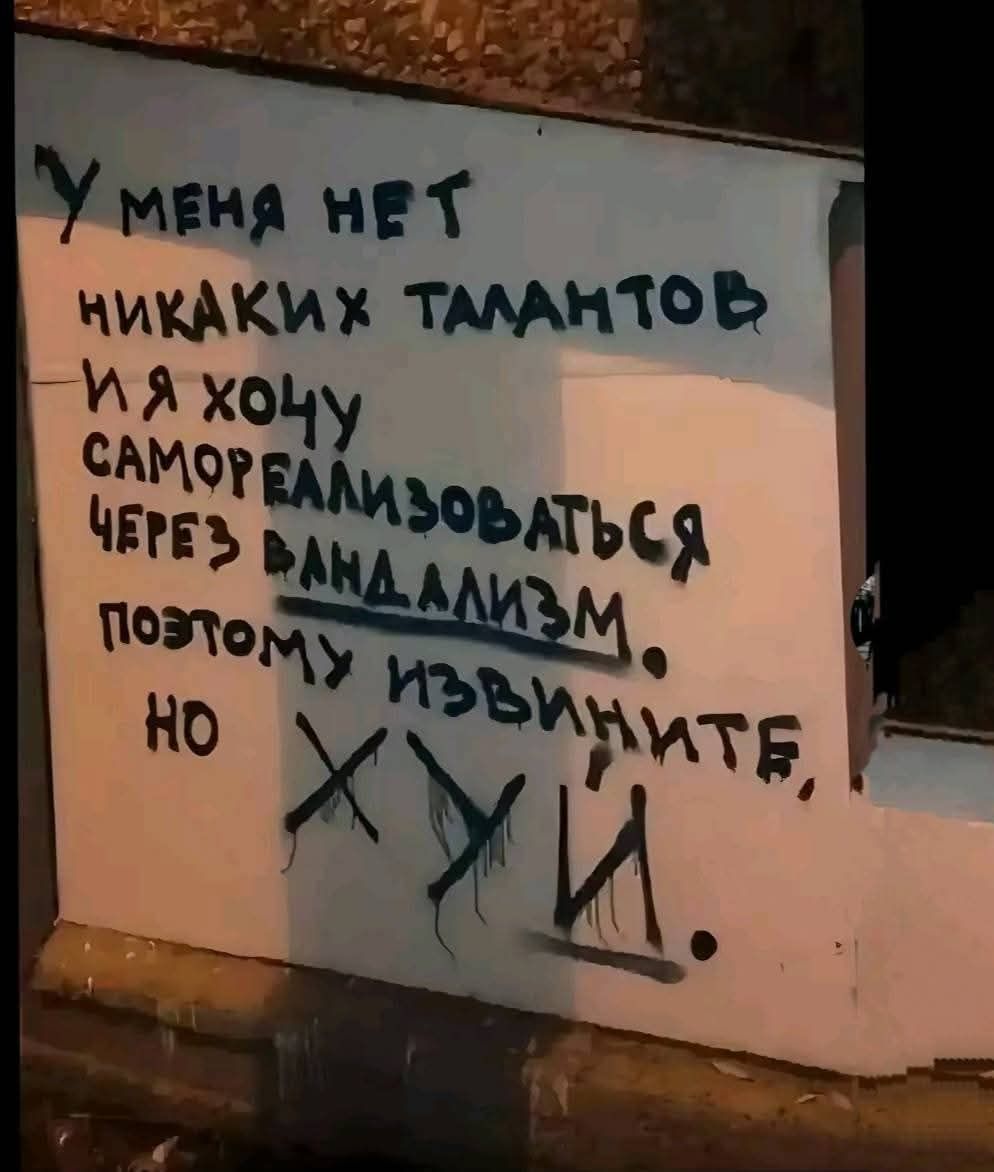 У МЕНЯ НЕТ
НИКАКИХ ТАЛАНТОВ
И Я ХОЧУ
САМОРЕАЛИЗОВАТЬСЯ
ЧЕРЕЗ ВАНДАЛИЗМ.
ПОЭТОМУ ИЗВИНИТЕ,
НО ХУЙ.